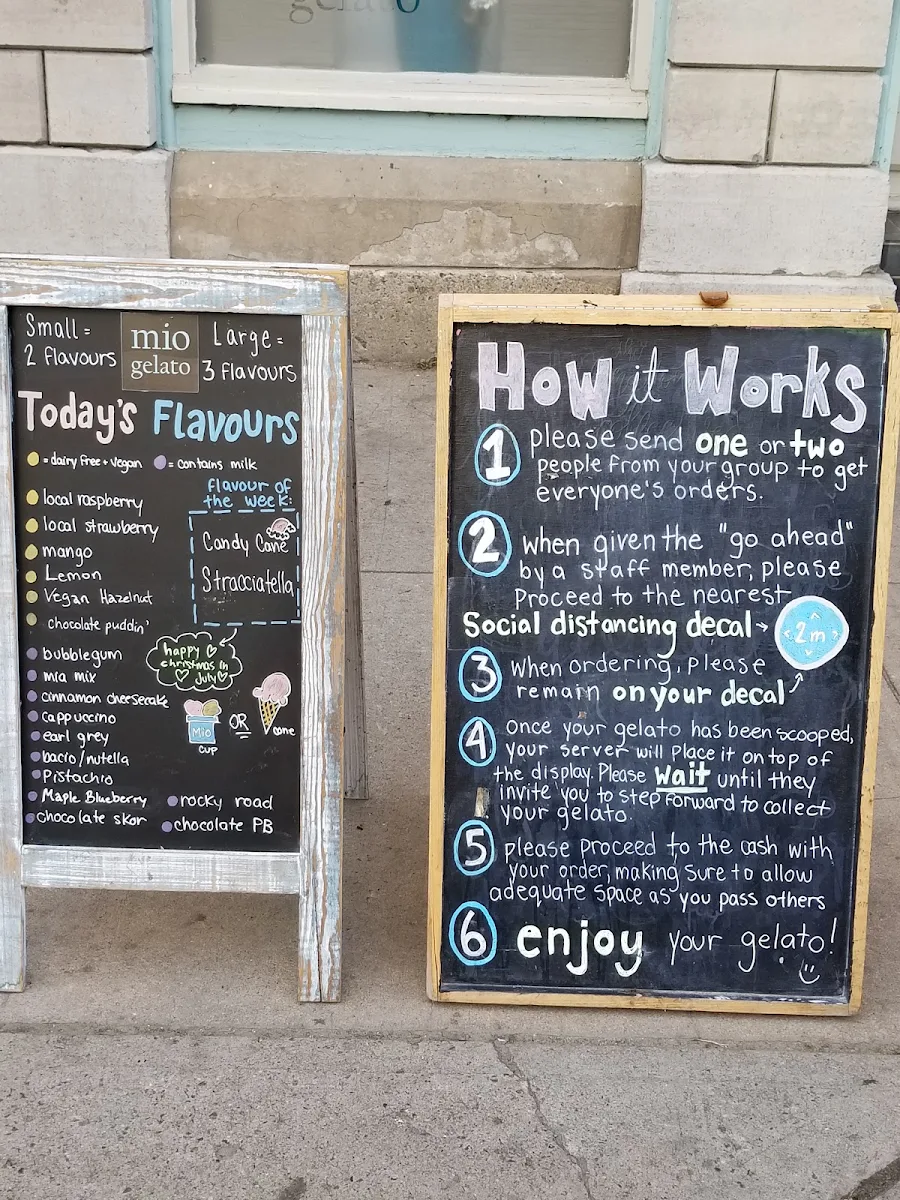 gelato
Small =
2 flavours
mio
gelato
Large =
3 flavours
Today's Flavours
= dairy free + vegan
= contains milk
local raspberry
local strawberry
mango
Lemon
Vegan Hazelnut
chocolate puddin'
bubblegum
mia mix
cinnamon cheesecake
cappuccino
earl grey
bacio/nutella
Pistachio
Maple Blueberry
chocolate skor
rocky road
chocolate PB
flavour of
the week:
Candy Cane
Stracciatella
happy
christmas in
July
Mio
cup
OR
cone
How it Works
1 please send one or two
people from your group to get
everyone's orders.
2 when given the "go ahead"
by a staff member, please
Proceed to the nearest
Social distancing decal
2m
3 when ordering, please
remain on your decal
4 once your gelato has been scooped,
your server will place it on top of
the display. Please wait until they
invite you to step forward to collect
your gelato.
5 please proceed to the cash with
your order, making sure to allow
adequate space as you pass others
6 enjoy your gelato!